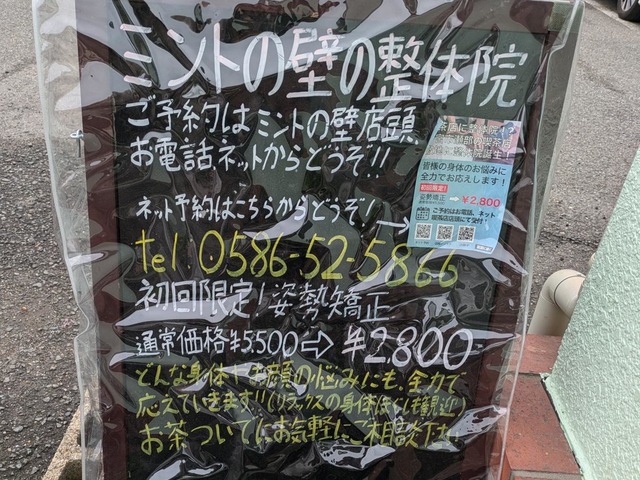 ミントの壁の整体院
ご予約はミントの壁店頭、
お電話ネットからどうぞ!!
ネット予約はこちらからどうぞ!
tel 0586-52-5866
初回限定!姿勢矯正
通常価格¥5,500⇨¥2,800
どんな身体 お顔の悩みにも、全力で
応えていきます!!(リラックスの身体ほぐしも歓迎)
お茶ついでにお気軽にご相談下さい
茶店に整体院!?
誕生!
皆様の身体のお悩みに
全力でお応えします!
初回限定!
姿勢矯正 → ¥2,800
ご予約はお電話、ネット
喫茶店店頭にて受付!